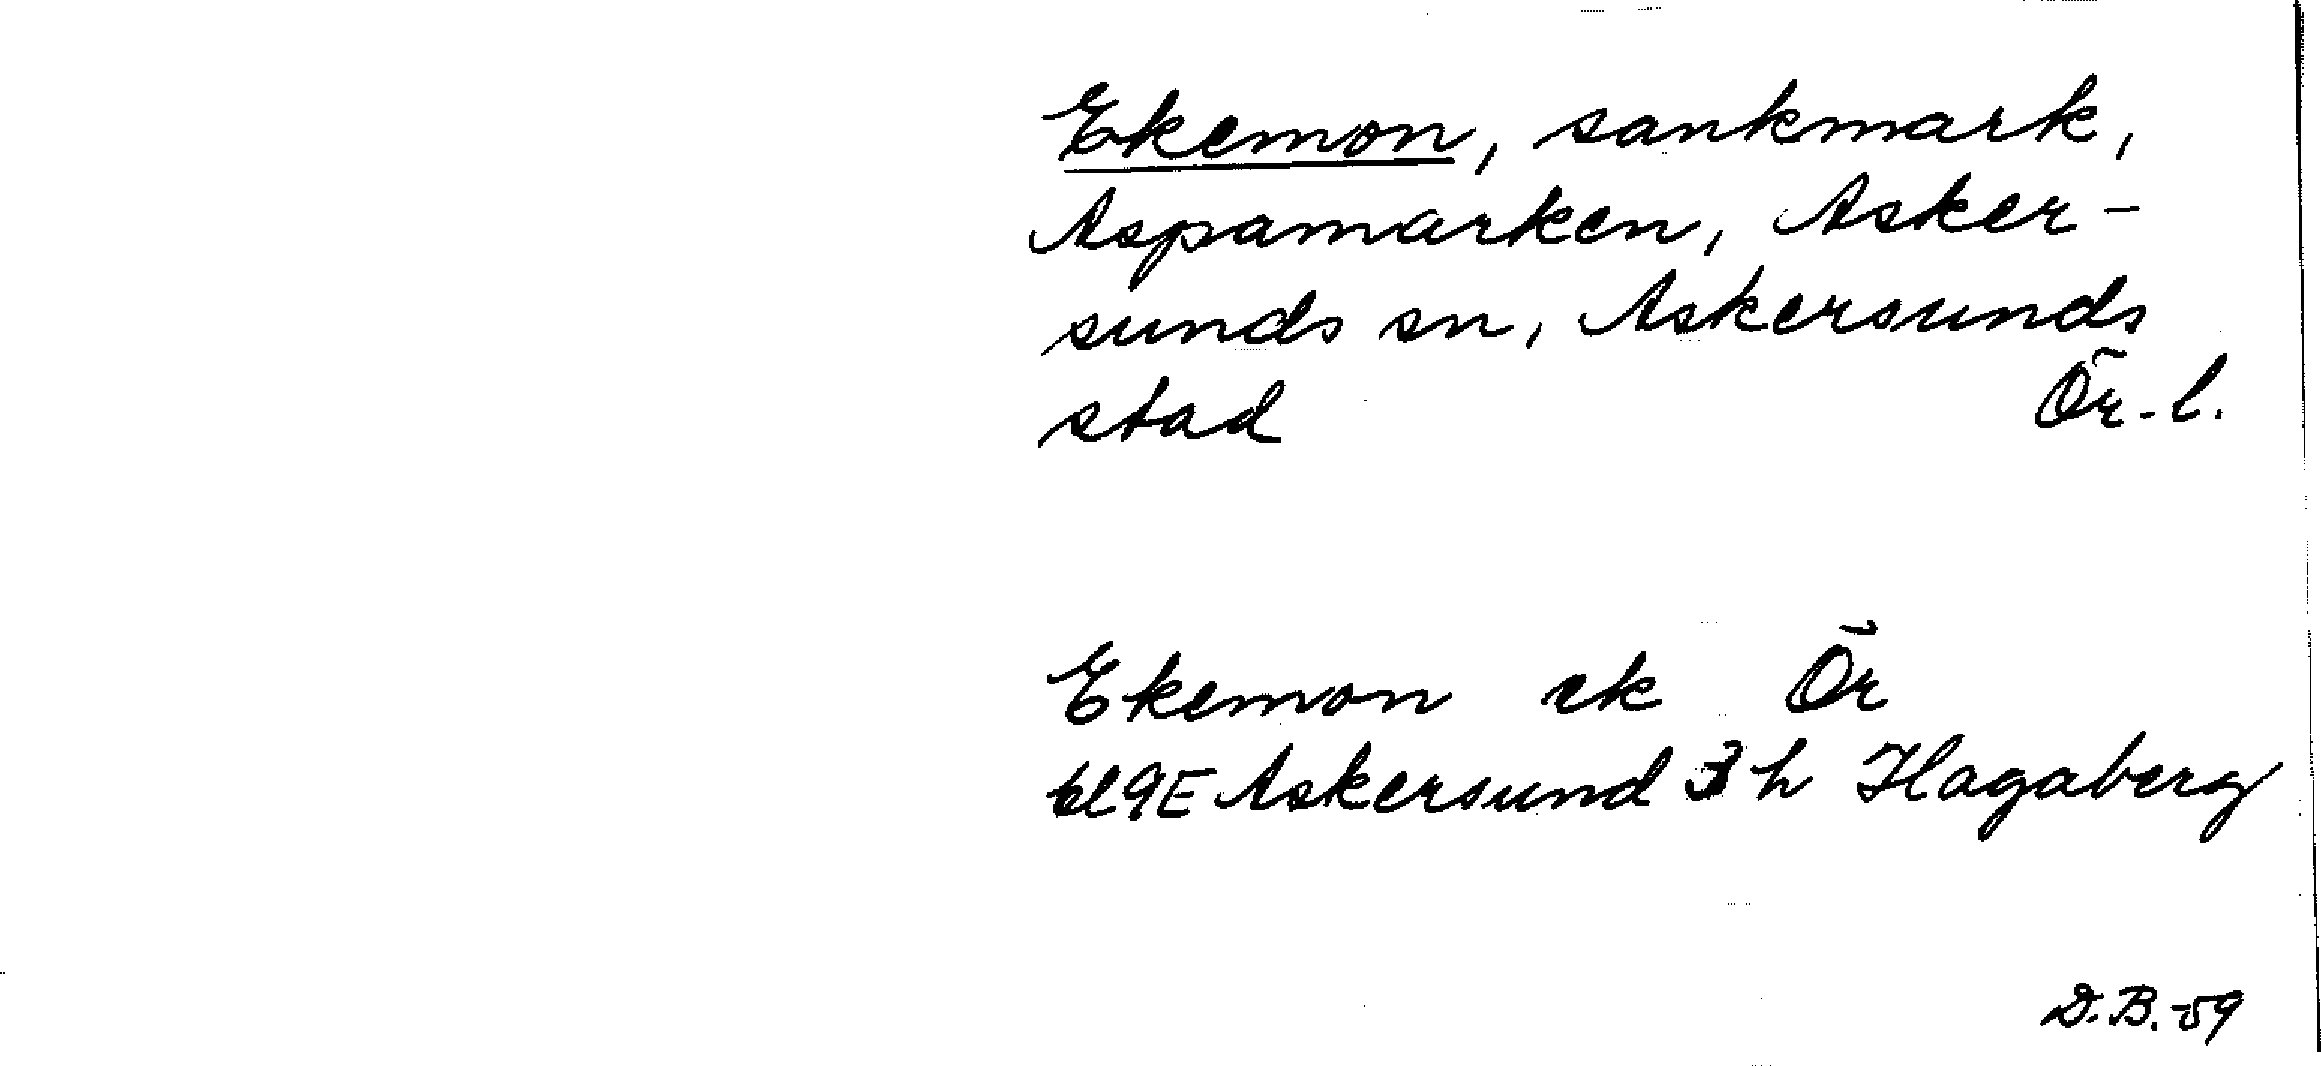 Ekemon, sankmark,
Aspamarken, Asker-
sunds sn, Askersunds
stad Ör-l.
Ekemon ek Ör
bl 9E Askersund 3 h Hagaberg
D.B.-59